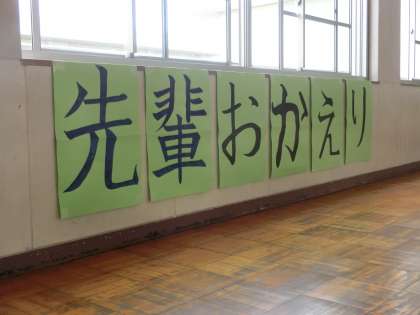 先輩おかえり